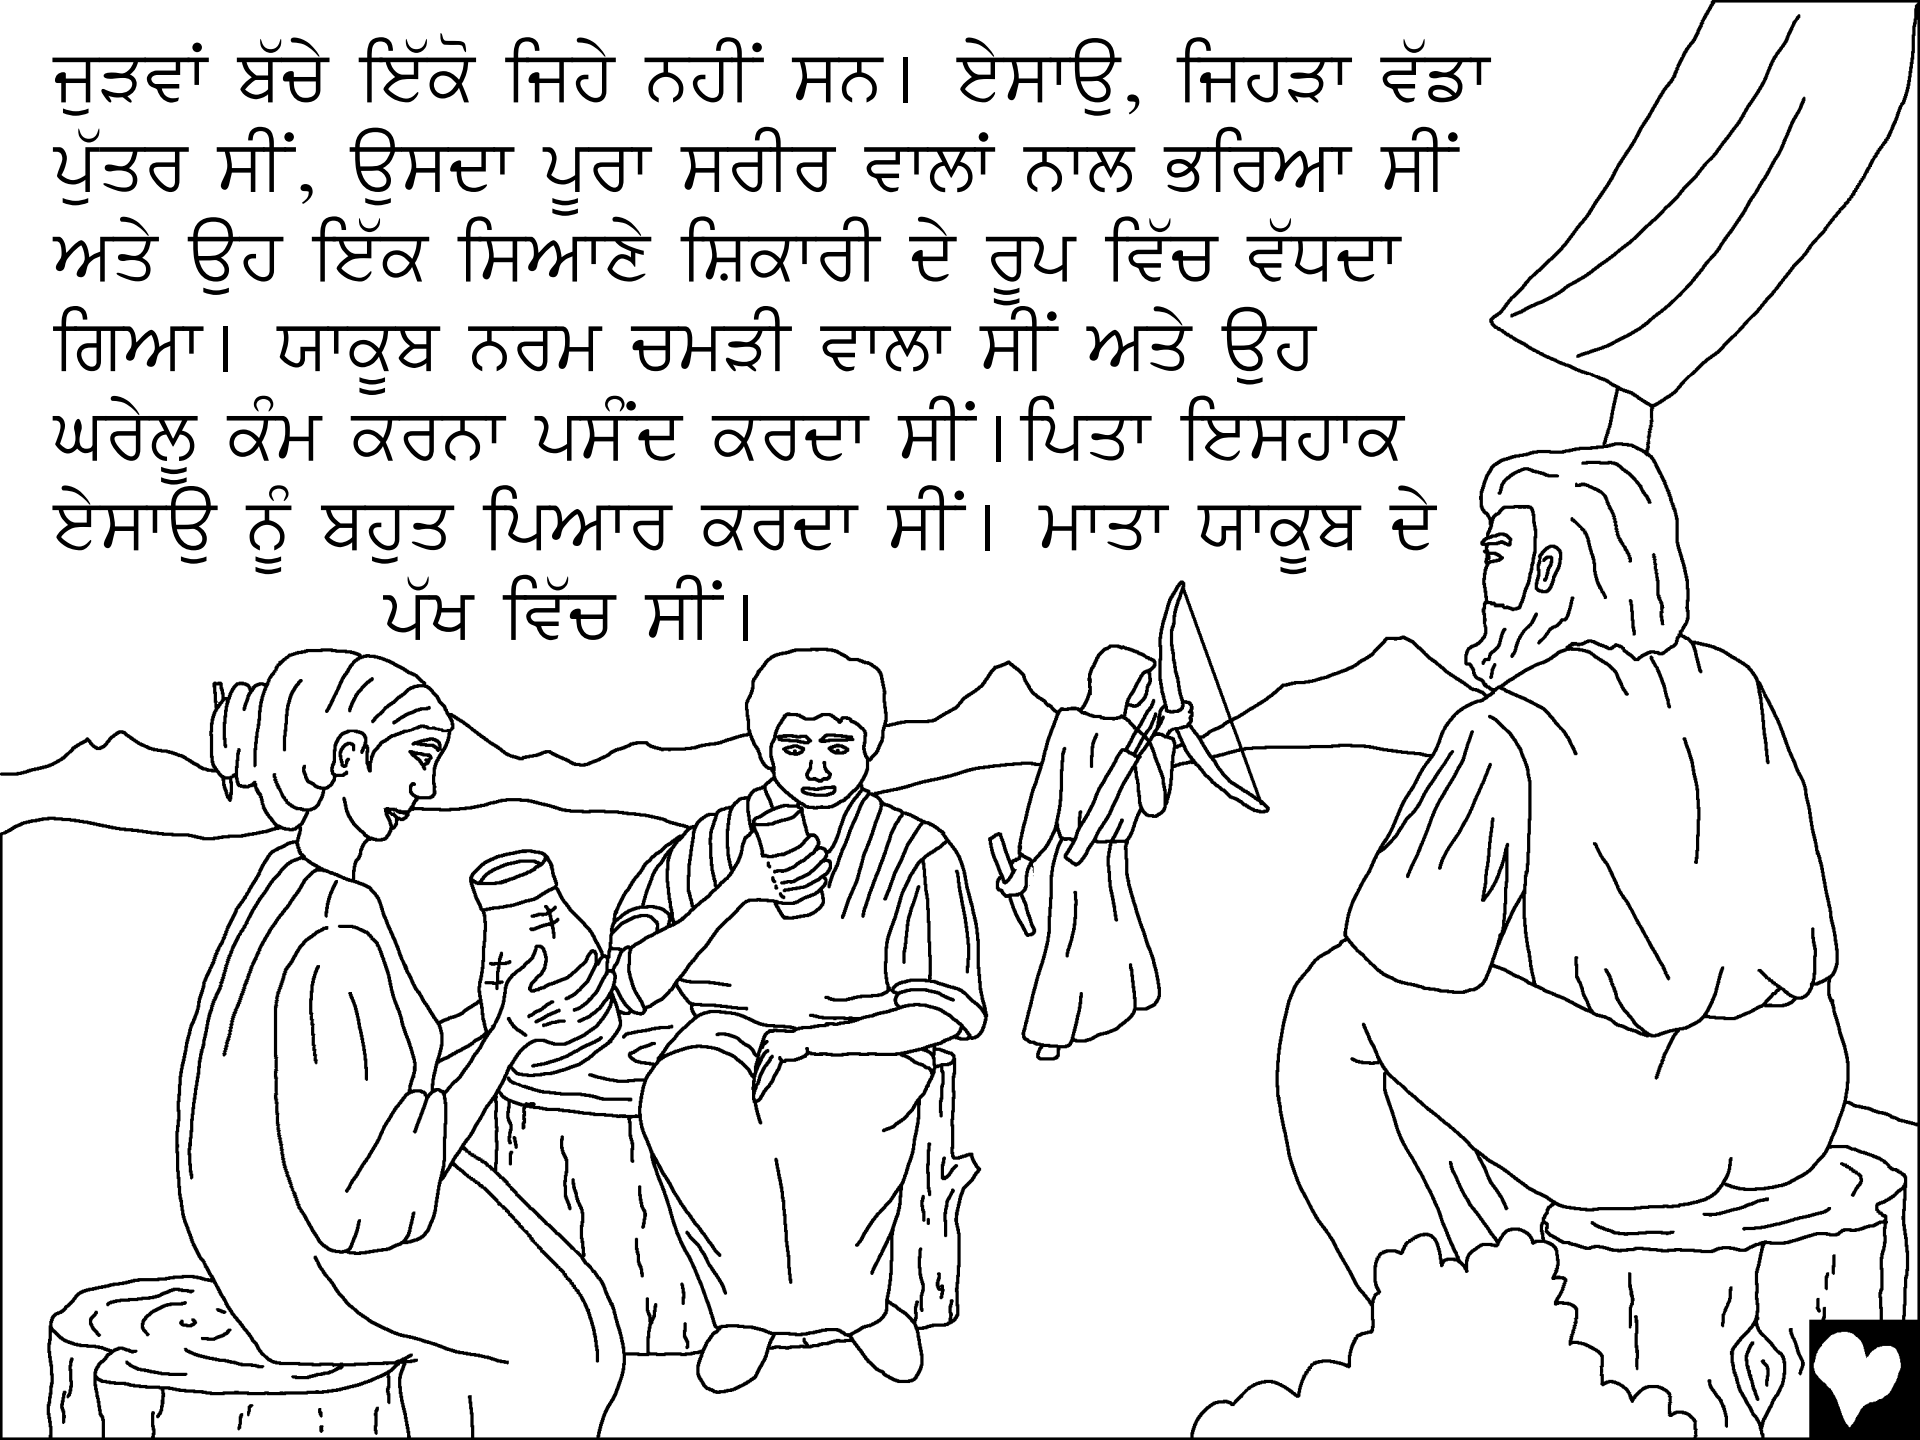 ਜੁੜਵਾਂ ਬੱਚੇ ਇੱਕੋ ਜਿਹੇ ਨਹੀਂ ਸਨ। ਏਸਾਉ, ਜਿਹੜਾ ਵੱਡਾ
ਪੁੱਤਰ ਸੀਂ, ਉਸਦਾ ਪੂਰਾ ਸਰੀਰ ਵਾਲਾਂ ਨਾਲ ਭਰਿਆ ਸੀਂ
ਅਤੇ ਉਹ ਇੱਕ ਸਿਆਣੇ ਸ਼ਿਕਾਰੀ ਦੇ ਰੂਪ ਵਿੱਚ ਵੱਧਦਾ
ਗਿਆ। ਯਾਕੂਬ ਨਰਮ ਚਮੜੀ ਵਾਲਾ ਸੀਂ ਅਤੇ ਉਹ
ਘਰੇਲੂ ਕੰਮ ਕਰਨਾ ਪਸੰਦ ਕਰਦਾ ਸੀਂ।ਪਿਤਾ ਇਸਹਾਕ
ਏਸਾਉ ਨੂੰ ਬਹੁਤ ਪਿਆਰ ਕਰਦਾ ਸੀਂ। ਮਾਤਾ ਯਾਕੂਬ ਦੇ
ਪੱਖ ਵਿੱਚ ਸੀਂ।